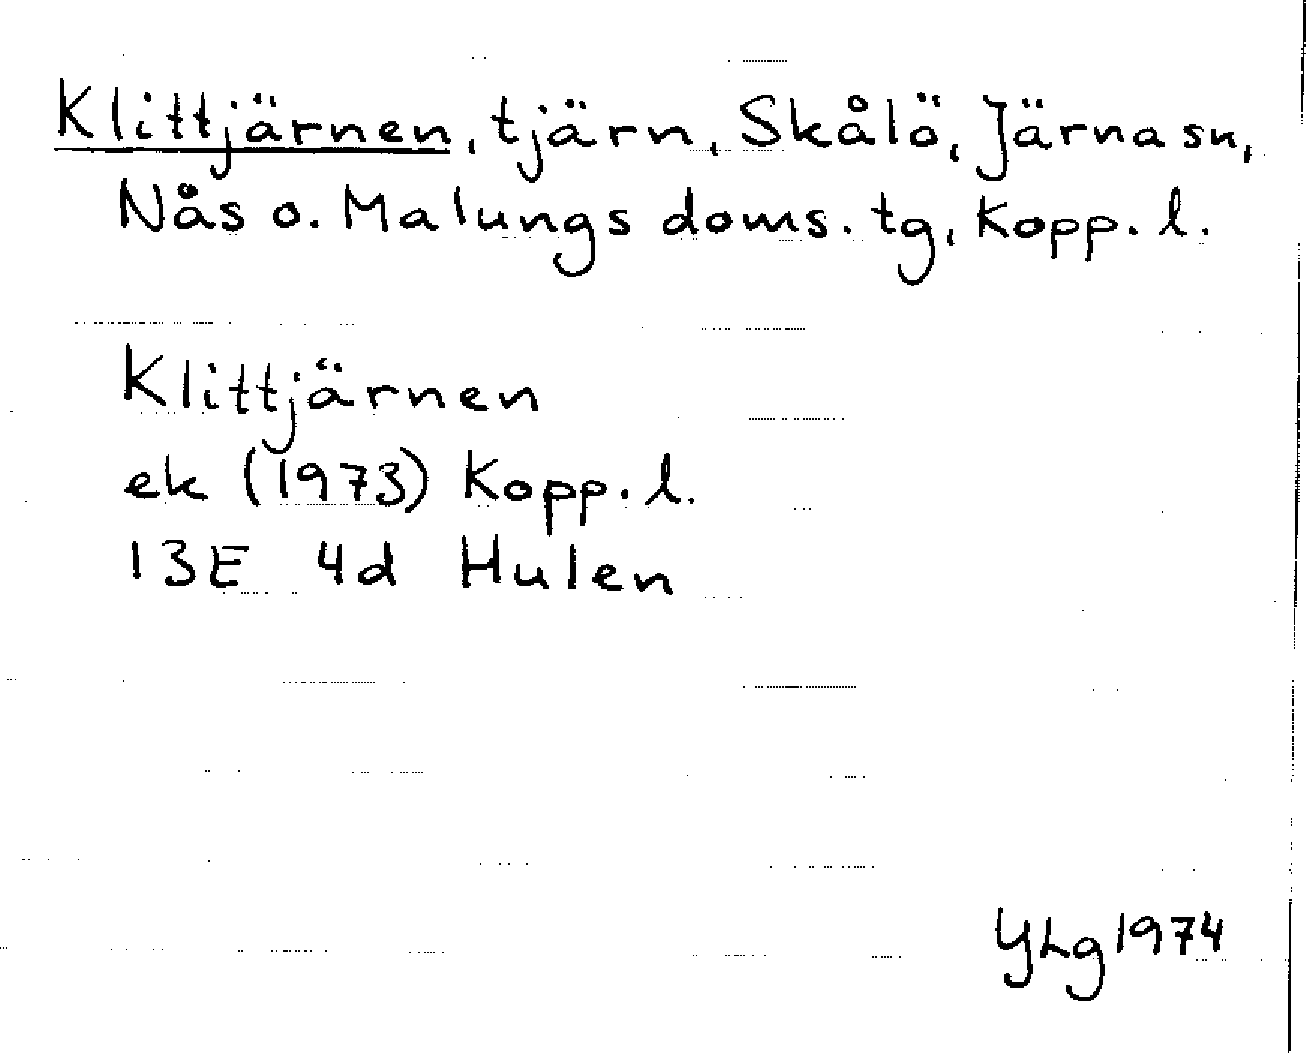 Klittjärnen, tjärn, Skålö, Järna sn,
Nås o. Malungs doms. tg, Kopp. l.
Klittjärnen
ek (1973) Kopp. l.
13E 4d Hulen
YLg 1974